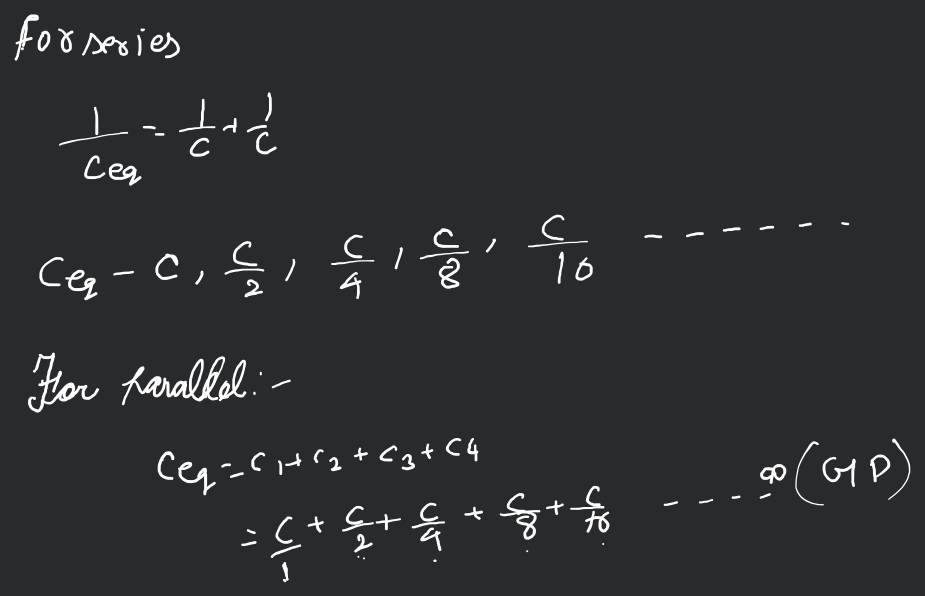 for series
1/Ceq = 1/C + 1/C
Ceq - C, C/2, C/4, C/8, C/16 ------
For parallel:-
Ceq = C1 + C2 + C3 + C4
= C/1 + C/2 + C/4 + C/8 + C/16 ---- ∞ (GP)